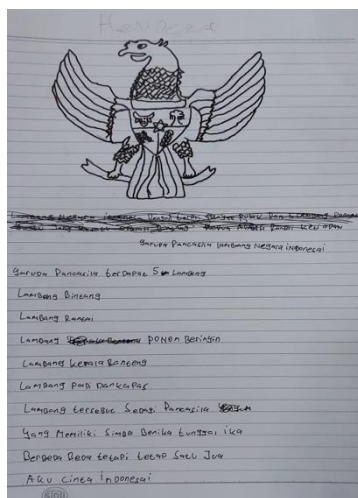 Garuda Pancasila lambang Negara indonesai
Garuda Pancasila terdapat 5 Lambang
Lambang Bintang
Lambang Rantai
Lambang PoHon Beringin
Lambang Kepala Banteng
Lambang Padi Dan Kapas
Lambang tersebut Sebagi Pancasila
Yang Memiliki Simbo Benika tunggal ika
Berbeda Beda tetapi tetap Satu Jua
Aku Cinta indonesai